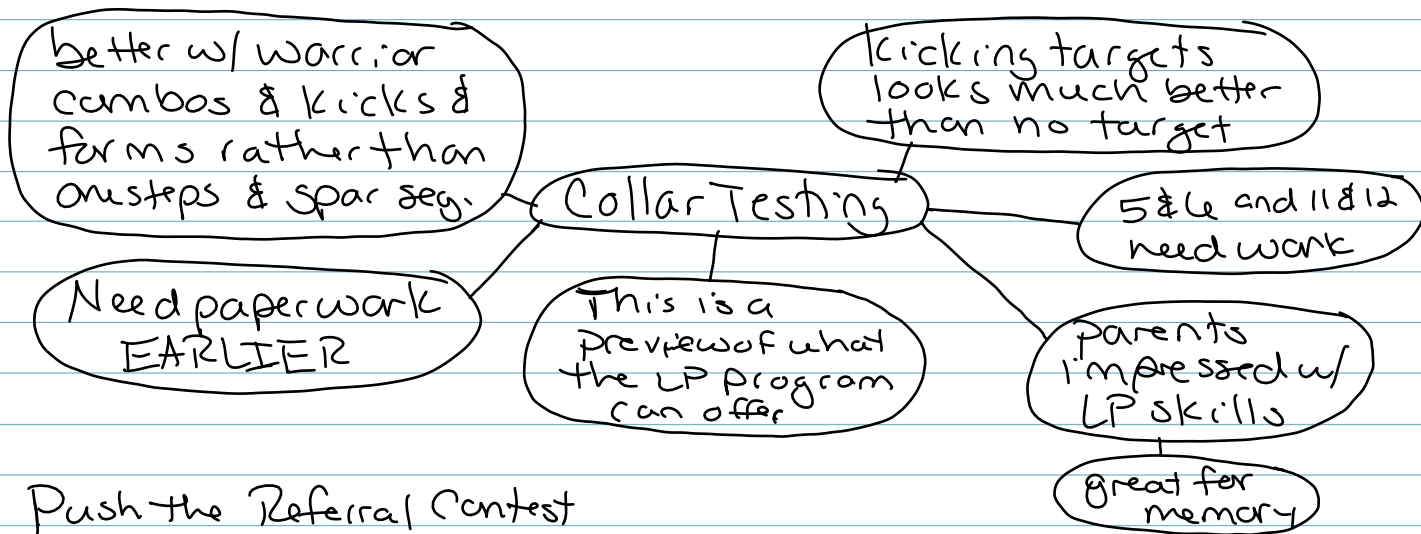 better w/ warrior
combos & kicks &
forms rather than
onesteps & spar seg.
Kicking targets
looks much better
than no target
Collar Testing
5 & 6 and 11 & 12
need work
Need paperwork
EARLIER
This is a
preview of what
the LP program
can offer
parents
impressed w/
LP skills
great for
memory
Push the Referral Contest